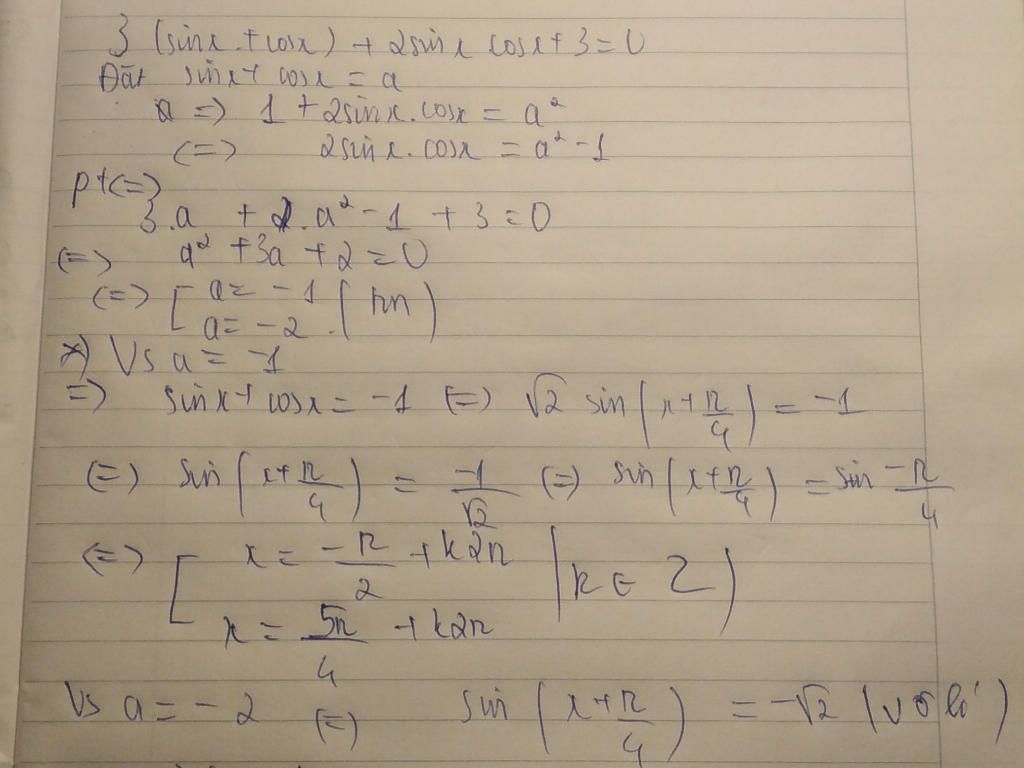 3 (sinx + cosx) + 2sinx cosx + 3 = 0
Đặt sinx + cosx = a
=> 1 + 2sinx.cosx = a²
(=) 2sinx.cosx = a² - 1
pt (=)
3.a + a² - 1 + 3 = 0
(=) a² + 3a + 2 = 0
(=) [ a = -1
a = -2 . (tm)
*) Vs a = -1
=> sinx + cosx = -1 (=) √2 sin(x + π/4) = -1
(=) sin(x + π/4) = -1/√2 (=) sin(x + π/4) = sin -π/4
(=) [ x = -π/2 + k2π (k ∈ Z)
x = 5π/4 + k2π
Vs a = -2 (=) sin(x + π/4) = -√2 (vô lí)